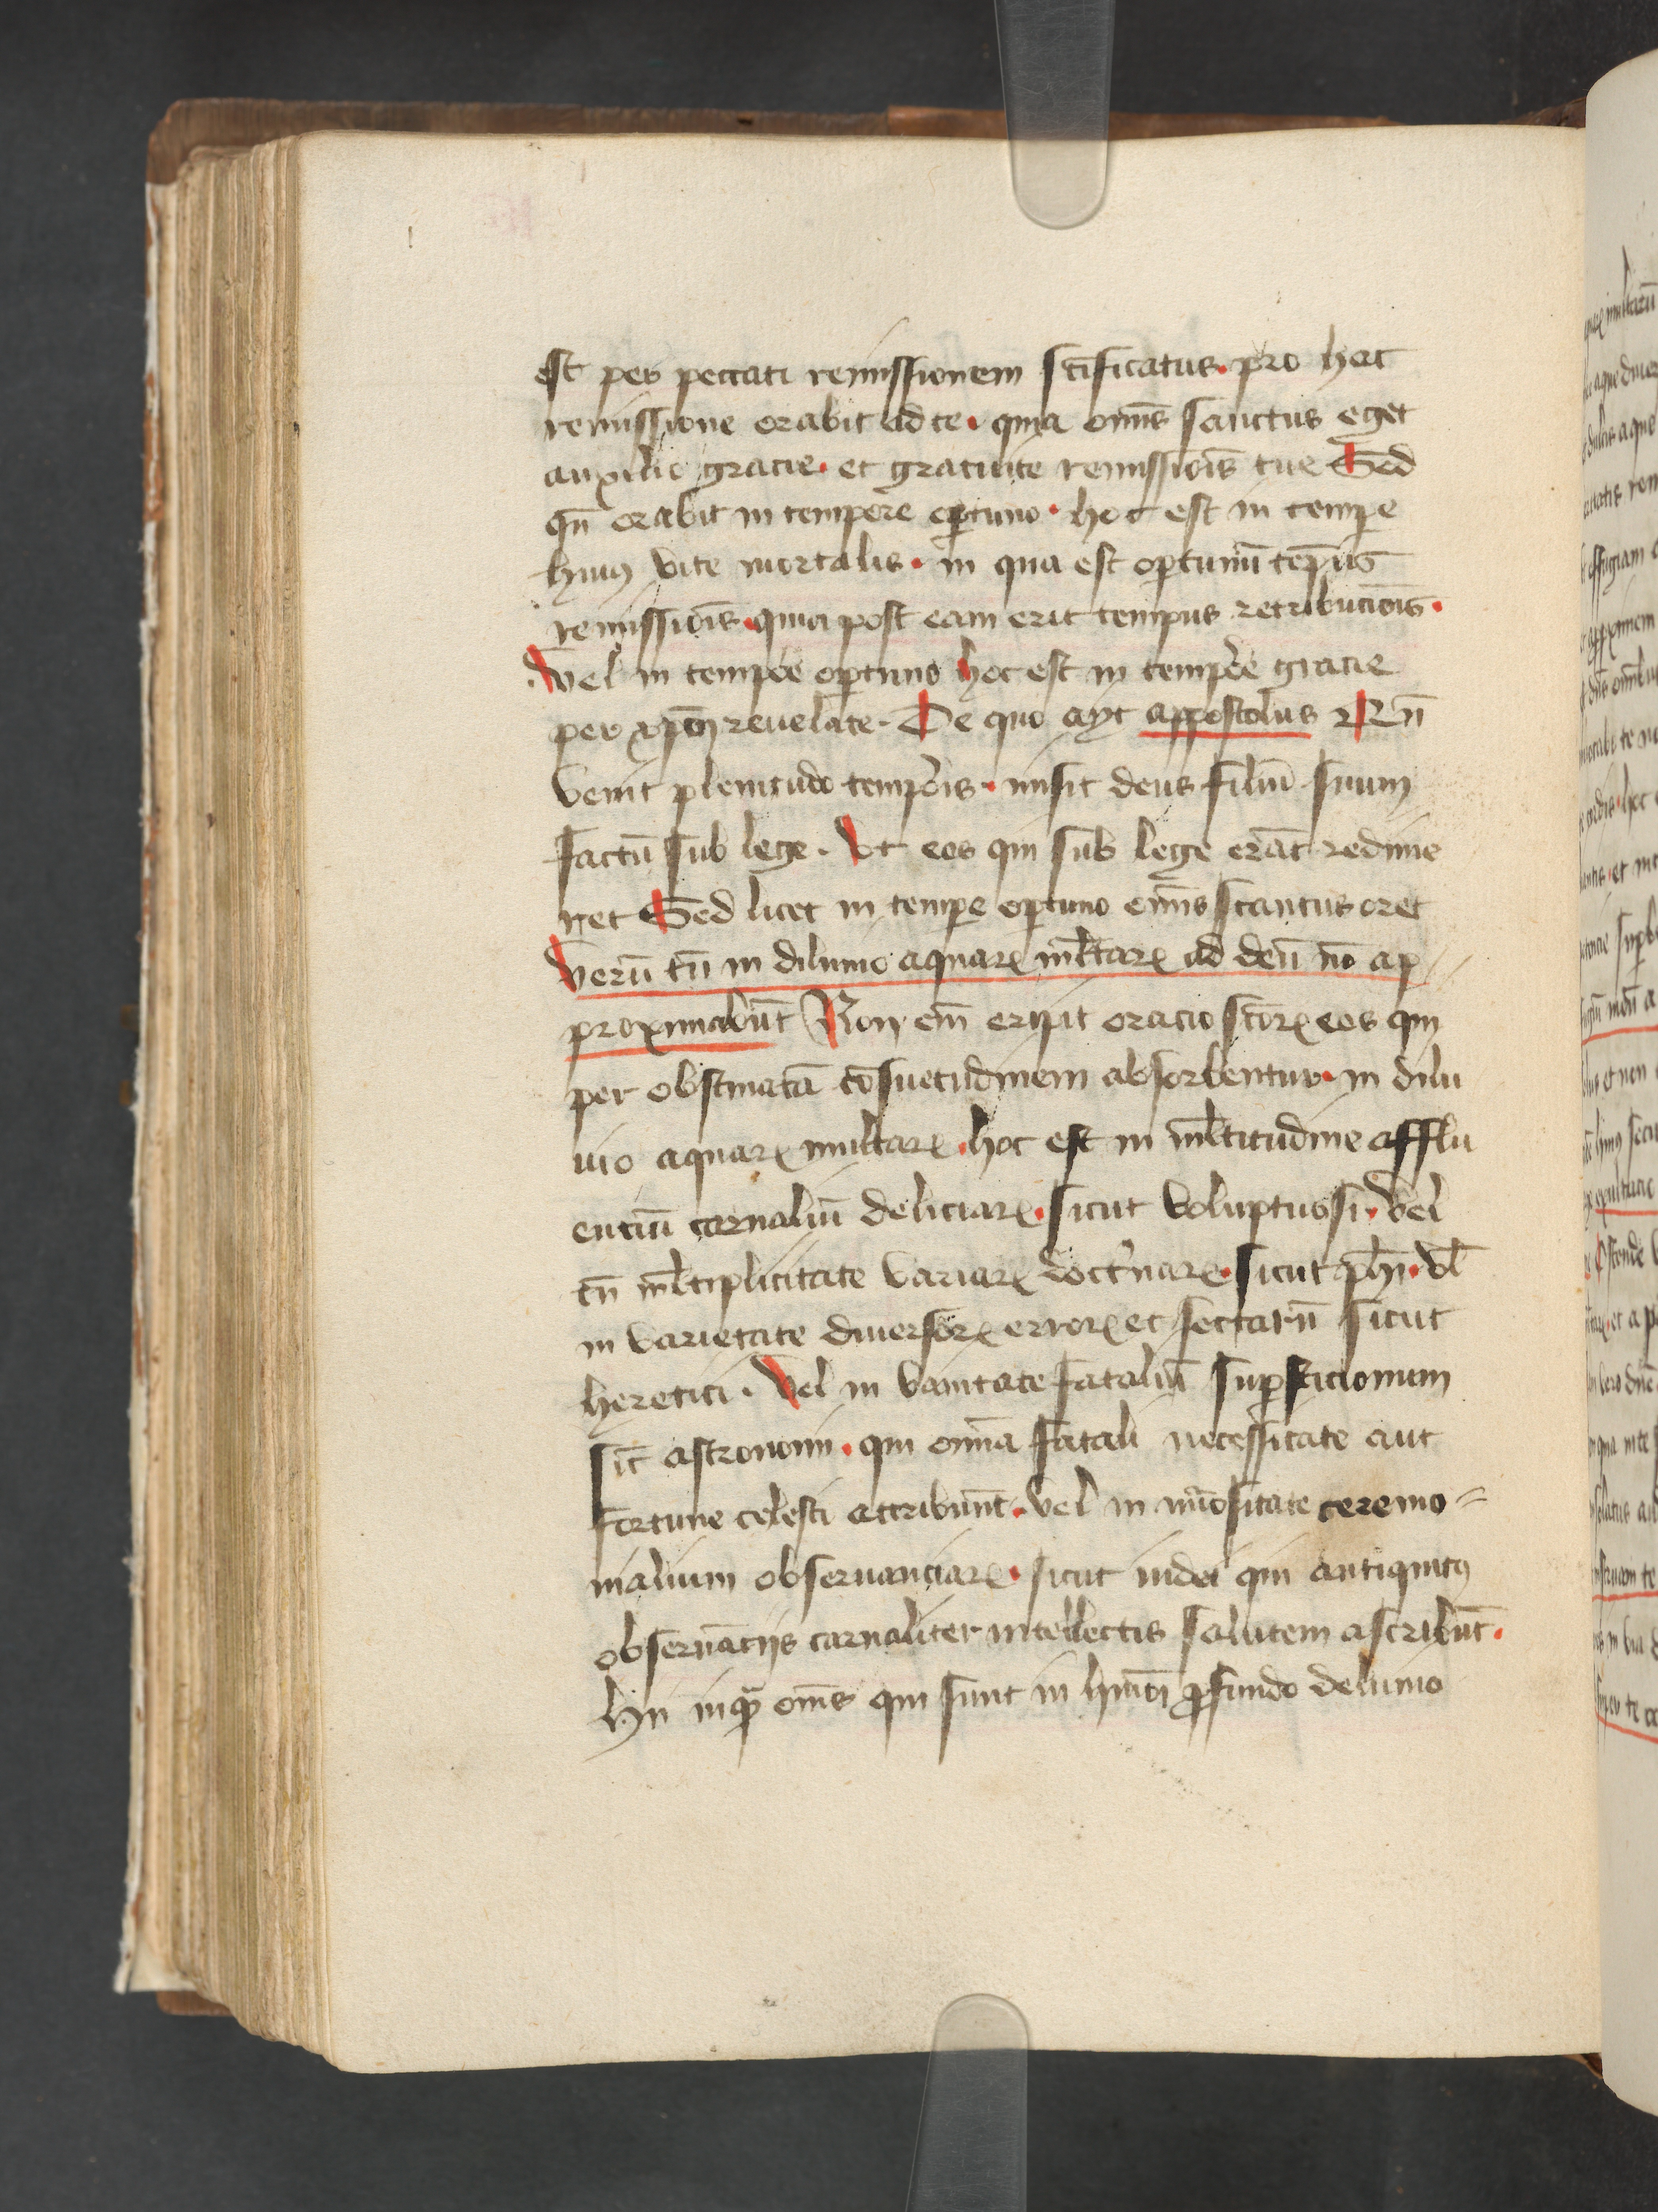 est per peccati remissionem sctificatus. pro hac
remissione orabit ad te. quia om̄s sanctus eget
auxilio gracie. et gratuite remissiōis tue Sed
qn̄ orabit in tempore optuno. hoc est in tempe
huiꝰ vite mortalis. in qua est optunū tempus
remissiōis. quia post eam erit tempus retribuciōis.
Vel in tempore optuno hoc est in tempore gracie
per xp̄m reuelate. De quo ayt appostolus
venit plenitudo temporis. misit deus filiū suum
factū sub lege. Vt eos qui sub lege erāt redime
ret Sed licet in tempe optuno om̄s sanctus oret
Verū tn̄ in diluuio aquaꝝ ml̄taꝝ ad deū nō ap
proximabūt Non em̄ eripit oracio sctōꝝ eos qui
per obstinatā cōsuetudinem absorbentur. in dilu
uio aquaꝝ multaꝝ. hoc est in ml̄titudine afflu
enciū carnaliū deliciaꝝ. sicut voluptuosi. vel
in ml̄tiplicitate variaꝝ doctrinaꝝ. sicut ph̄i. vl̄
in varietate diuersoꝝ erroꝝ et sectarū sicut
heretici. Vel in vanitate fataliū supsticionum
sic̄ astronomi. qui omīa fatali necessitate aut
fortune celesti attribuūt. vel in nūositate ceremo
nialium obseruanciaꝝ. sicut iudei qui antiquitꝰ
obseruācijs carnaliter intellectis salutem ascribūt.
hii inquā om̄s qui sunt in hmōi ꝓfundo deluuio